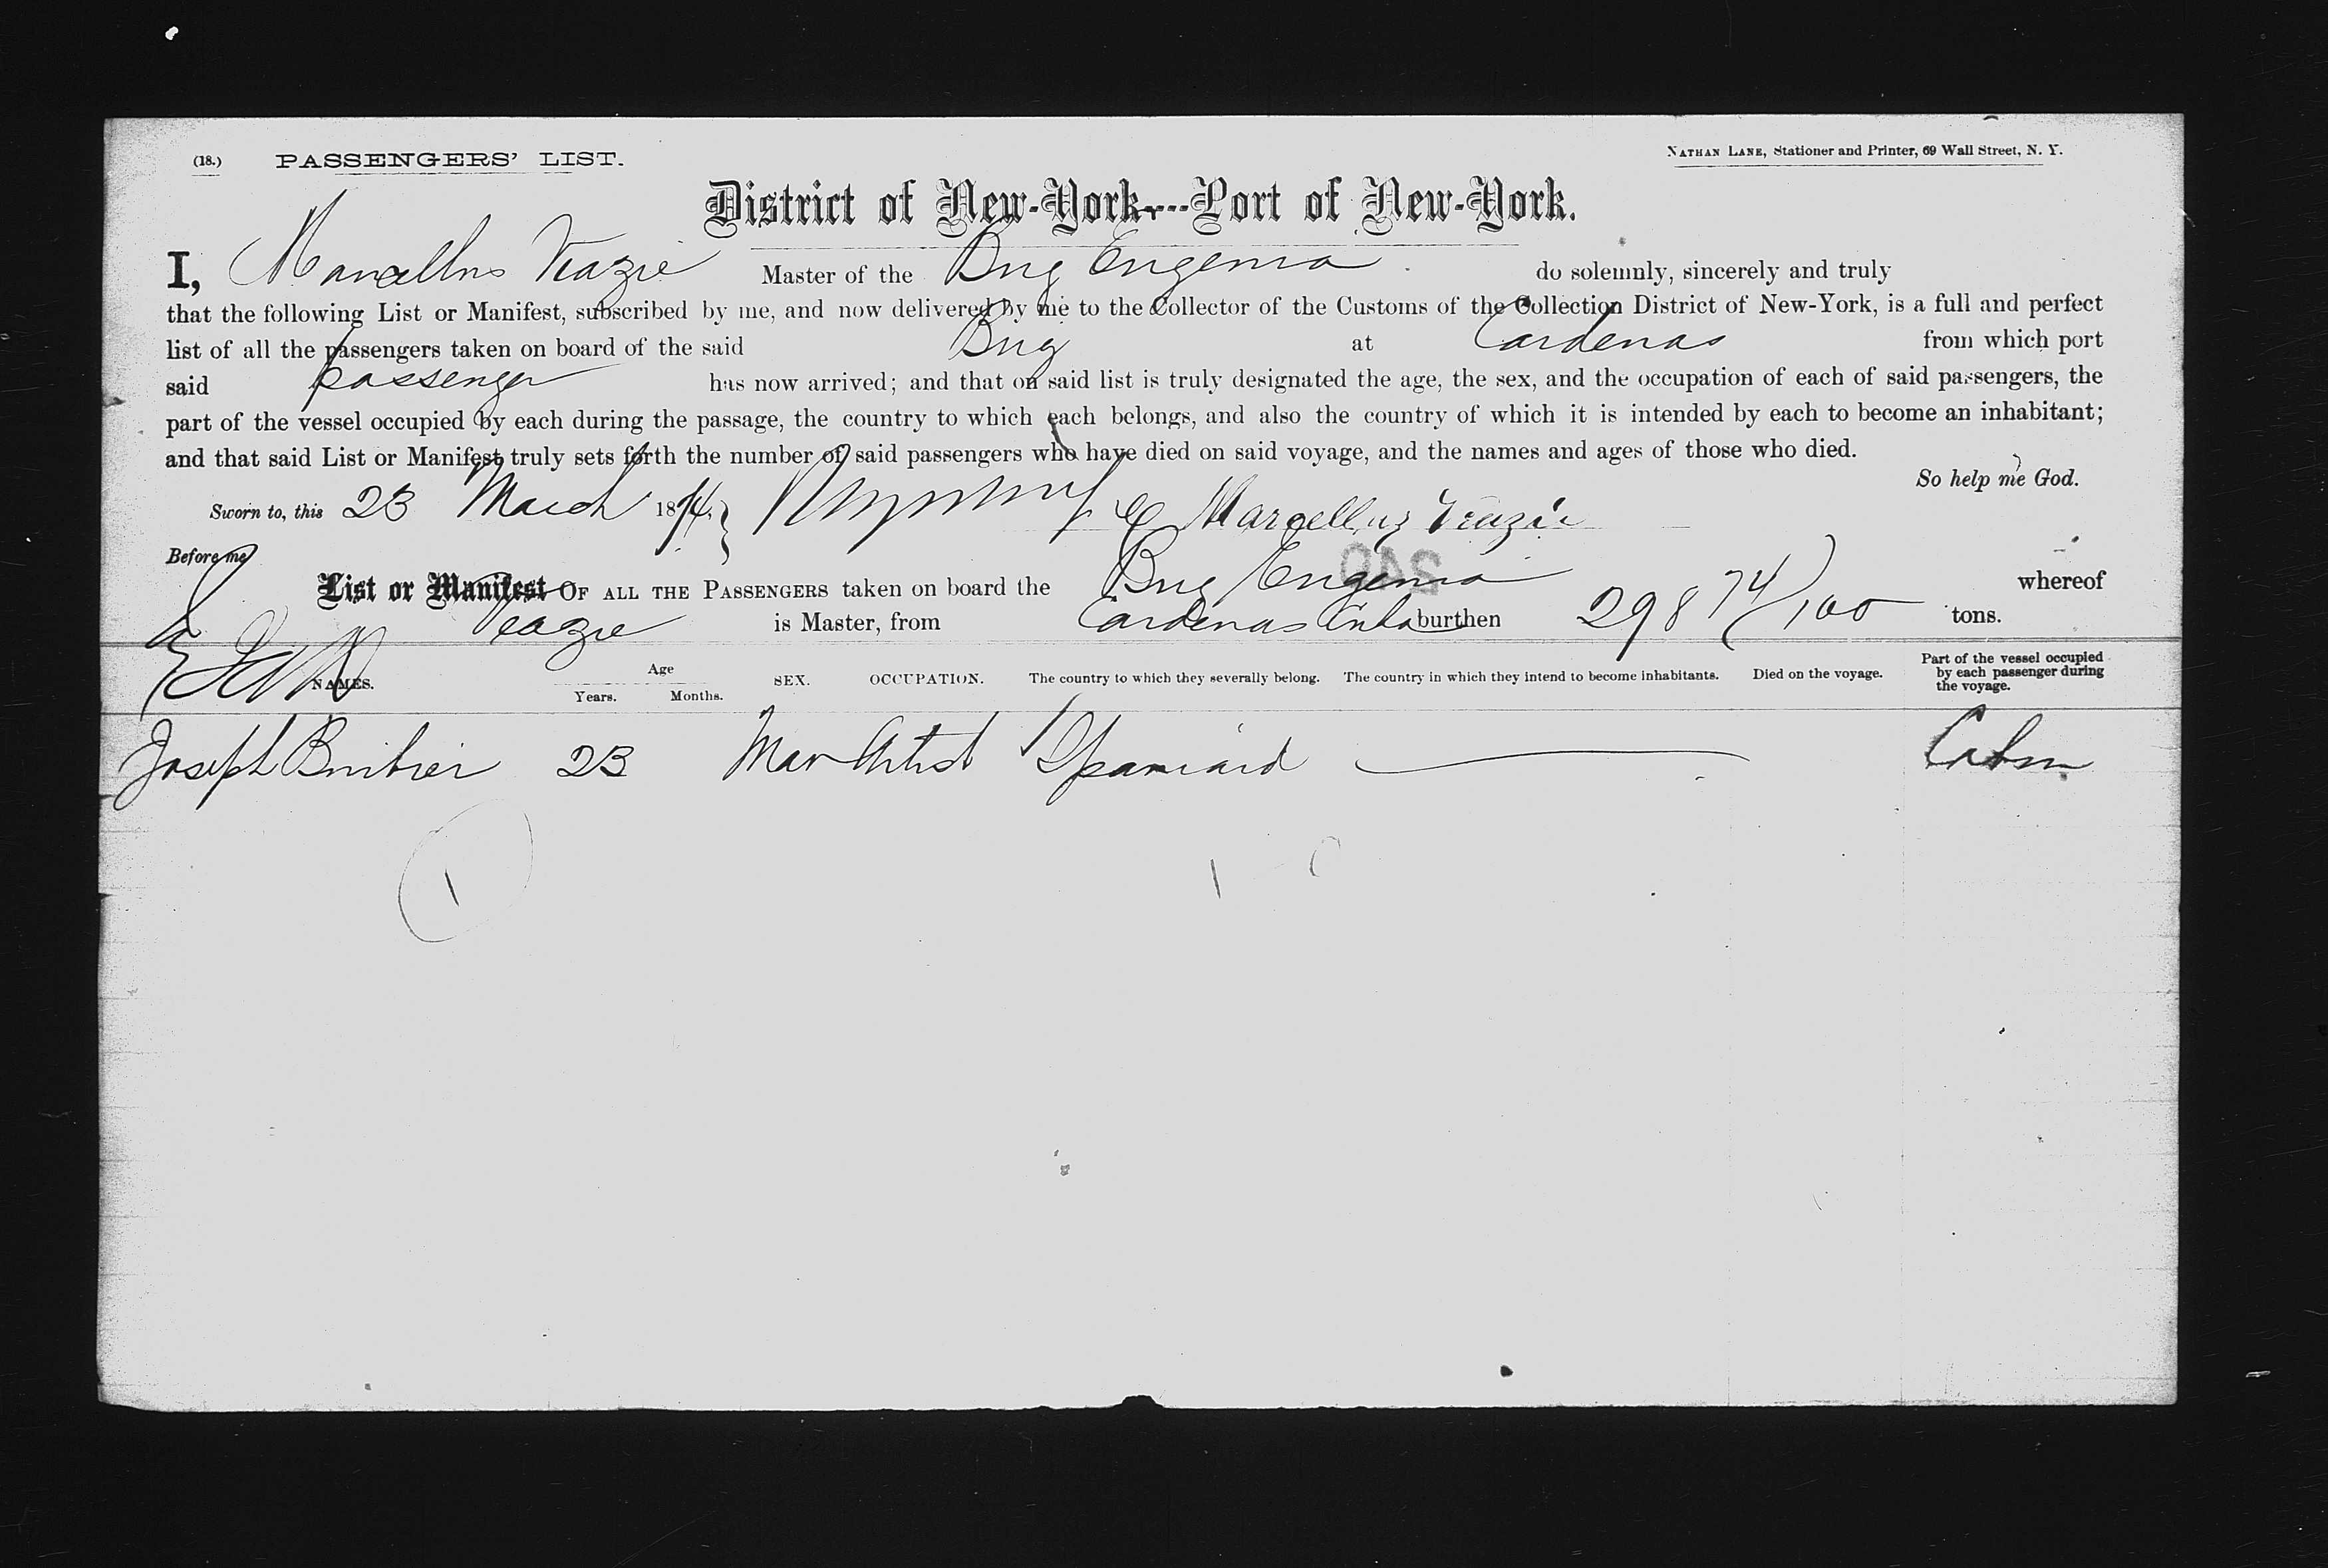 (18.) PASSENGERS' LIST.
NATHAN LANE, Stationer and Printer, 69 Wall Street, N. Y.
District of New-York---Port of New-York.
I, Marcellus Veazie Master of the Brig Eugenia do solemnly, sincerely and truly
that the following List or Manifest, subscribed by me, and now delivered by me to the Collector of the Customs of the Collection District of New-York, is a full and perfect
list of all the passengers taken on board of the said Brig at Cardenas from which port
said passenger has now arrived; and that on said list is truly designated the age, the sex, and the occupation of each of said passengers, the
part of the vessel occupied by each during the passage, the country to which each belongs, and also the country of which it is intended by each to become an inhabitant;
and that said List or Manifest truly sets forth the number of said passengers who have died on said voyage, and the names and ages of those who died.
So help me God.
Sworn to, this 23 March 1874. Marcellus Veazie
Before me
240
List or Manifest OF ALL THE PASSENGERS taken on board the Brig Eugenia whereof
Veazie is Master, from Cardenas Cuba burthen 298 74/100 tons.
NAMES. Age Years. Months. SEX. OCCUPATION. The country to which they severally belong. The country in which they intend to become inhabitants. Died on the voyage. Part of the vessel occupied by each passenger during the voyage.
Joseph 23 Man Artist Spaniard Cabin
1 1